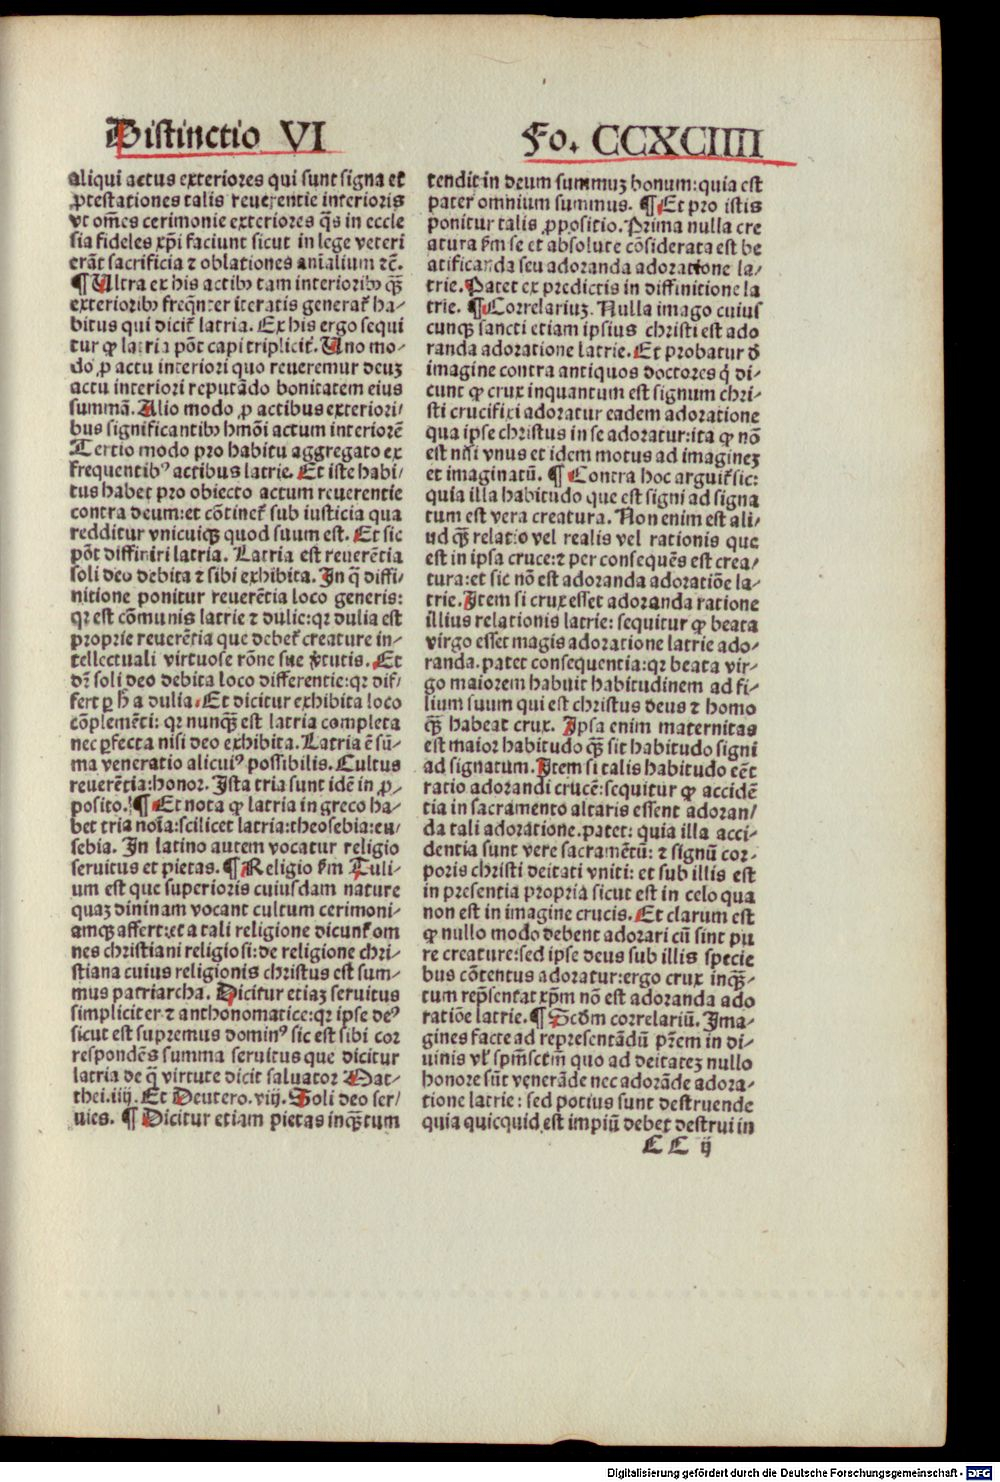 Distinctio VI
Fo. CCXCIIII
aliqui actus exteriores qui sunt signa et
ꝓtestationes talis reuerentie interioris
vt om̄es cerimonie exteriores q̄s in eccle
sia fideles xp̄i faciunt sicut in lege veteri
erāt sacrificia ⁊ oblationes animalium ⁊c̄.
¶ Ultra ex his actibꝰ tam interioribꝰ qꝫ̄
exterioribꝰ freq̄nter iteratis generat᷑ ha⸗
bitus qui dicit᷑ latria. Ex his ergo sequi
tur ꝙ latria pōt capi triplicit᷑. Uno mo⸗
do ꝓ actu interiori quo reueremur deuꝫ
actu interiori reputādo bonitatem eius
summā. Alio modo ꝓ actibus exteriori/
bus significantibꝰ hmōi actum interiorē
Tertio modo pro habitu aggregato ex
frequentibꝰ actibus latrie. Et iste habi/
tus habet pro obiecto actum reuerentie
contra deum:et cōtinet᷑ sub iusticia qua
redditur vnicuiqꝫ quod suum est. Et sic
pōt diffiniri latria. Latria est reuerētia
soli deo debita ⁊ sibi exhibita. In q̄ diffi⸗
nitione ponitur reuerētia loco generis:
qꝛ est cōmunis latrie ⁊ dulie:qꝛ dulia est
proprie reuerētia que debet᷑ creature in⸗
tellectuali virtuose rōne sue v̄tutis. Et
dꝛ̄ soli deo debita loco differentie:qꝛ dif⸗
fert ꝑ h̄ a dulia. Et dicitur exhibita loco
cōplemēti: qꝛ nunqꝫ̄ est latria completa
nec ꝑfecta nisi deo exhibita. Latria ē sū⸗
ma veneratio alicuiꝰ possibilis. Cultus
reuerētia:honor. Ista tria sunt idē in ꝓ⸗
posito. ¶ Et nota ꝙ latria in greco ha⸗
bet tria noīa:scilicet latria:theosebia:eu⸗
sebia. In latino autem vocatur religio
seruitus et pietas. ¶ Religio ẜm Tuli⸗
um est que superioris cuiusdam nature
quaꝫ diuinam vocant cultum cerimoni⸗
amqꝫ affert:et a tali religione dicunt᷑ om
nes christiani religiosi: de religione chri⸗
stiana cuius religionis christus est sum⸗
mus patriarcha. Dicitur etiaꝫ seruitus
simpliciter ⁊ anthonomatice:qꝛ ipse deꝰ
sicut est supremus dominꝰ sic est sibi cor
respondēs summa seruitus que dicitur
latria de q̄ virtute dicit saluator Mat⸗
thei.iiij. Et Deutero.viij. Soli deo ser/
uies. ¶ Dicitur etiam pietas inqꝫ̄tum
tendit in deum summuꝫ bonum:quia est
pater omnium summus. ¶ Et pro istis
ponitur talis ꝓpositio. Prima nulla cre
atura ẜm se et absolute cōsiderata est be
atificanda seu adoranda adoratione la/
trie. Patet ex predictis in diffinitione la
trie. ¶ Correlariuꝫ. Nulla imago cuius
cunqꝫ sancti etiam ipsius christi est ado
randa adoratione latrie. Et probatur ð
imagine contra antiquos doctores q̇ di⸗
cunt ꝙ crux inquantum est signum chri⸗
sti crucifixi adoratur eadem adoratione
qua ipse christus in se adoratur:ita ꝙ nō
est nisi vnus et idem motus ad imagineꝫ
et imaginatū. ¶ Contra hoc arguit᷑ sic:
quia illa habitudo que est signi ad signa
tum est vera creatura. Non enim est ali/
ud qꝫ̄ relatio vel realis vel rationis que
est in ipsa cruce:⁊ per consequēs est crea/
tura:et sic nō est adoranda adoratiōe la⸗
trie. Item si crux esset adoranda ratione
illius relationis latrie: sequitur ꝙ beata
virgo esset magis adoratione latrie ado⸗
randa. patet consequentia:qꝛ beata vir⸗
go maiorem habuit habitudinem ad fi⸗
lium suum qui est christus deus ⁊ homo
qꝫ̄ habeat crux. Ipsa enim maternitas
est maior habitudo qꝫ̄ sit habitudo signi
ad signatum. Item si talis habitudo eēt
ratio adorandi crucē:sequitur ꝙ accidē
tia in sacramento altaris essent adoran/
da tali adoratione. patet: quia illa acci⸗
dentia sunt vere sacramētū: ⁊ signū cor⸗
poris christi deitati vniti: et sub illis est
in presentia propria sicut est in celo qua
non est in imagine crucis. Et clarum est
ꝙ nullo modo debent adorari cū sint pu
re creature:sed ipse deus sub illis specie
bus cōtentus adoratur:ergo crux inqꝫ̄⸗
tum rep̄sentat xp̄m nō est adoranda ado
ratiōe latrie. ¶ Scdm correlariū. Ima⸗
gines facte ad representādū pr̄em in di⸗
uinis vl᷑ spm̄sctm̄ quo ad deitateꝫ nullo
honore sūt venerāde nec adorāde adora⸗
tione latrie: sed potius sunt destruende
quia quicquid est impiū debet destrui in
CC ij
Digitalisierung gefördert durch die Deutsche Forschungsgemeinschaft - DFG